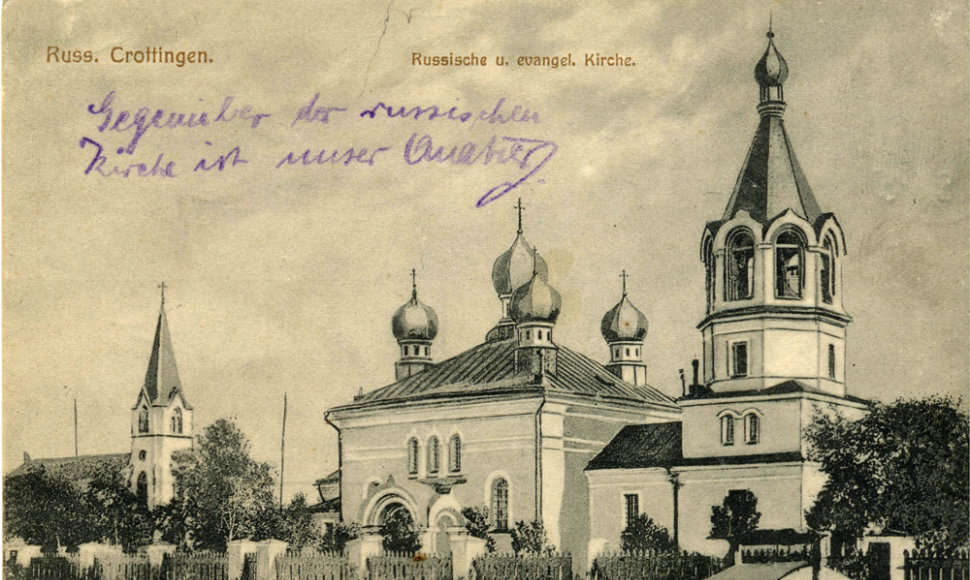 Russ. Crottingen.
Russische u. evangel. Kirche.
Gegenüber der russischen
Kirche ist unser Quatier.